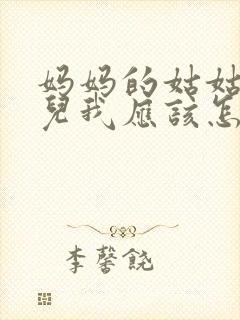 妈妈的姑姑
兒我应该怎
李馨饶